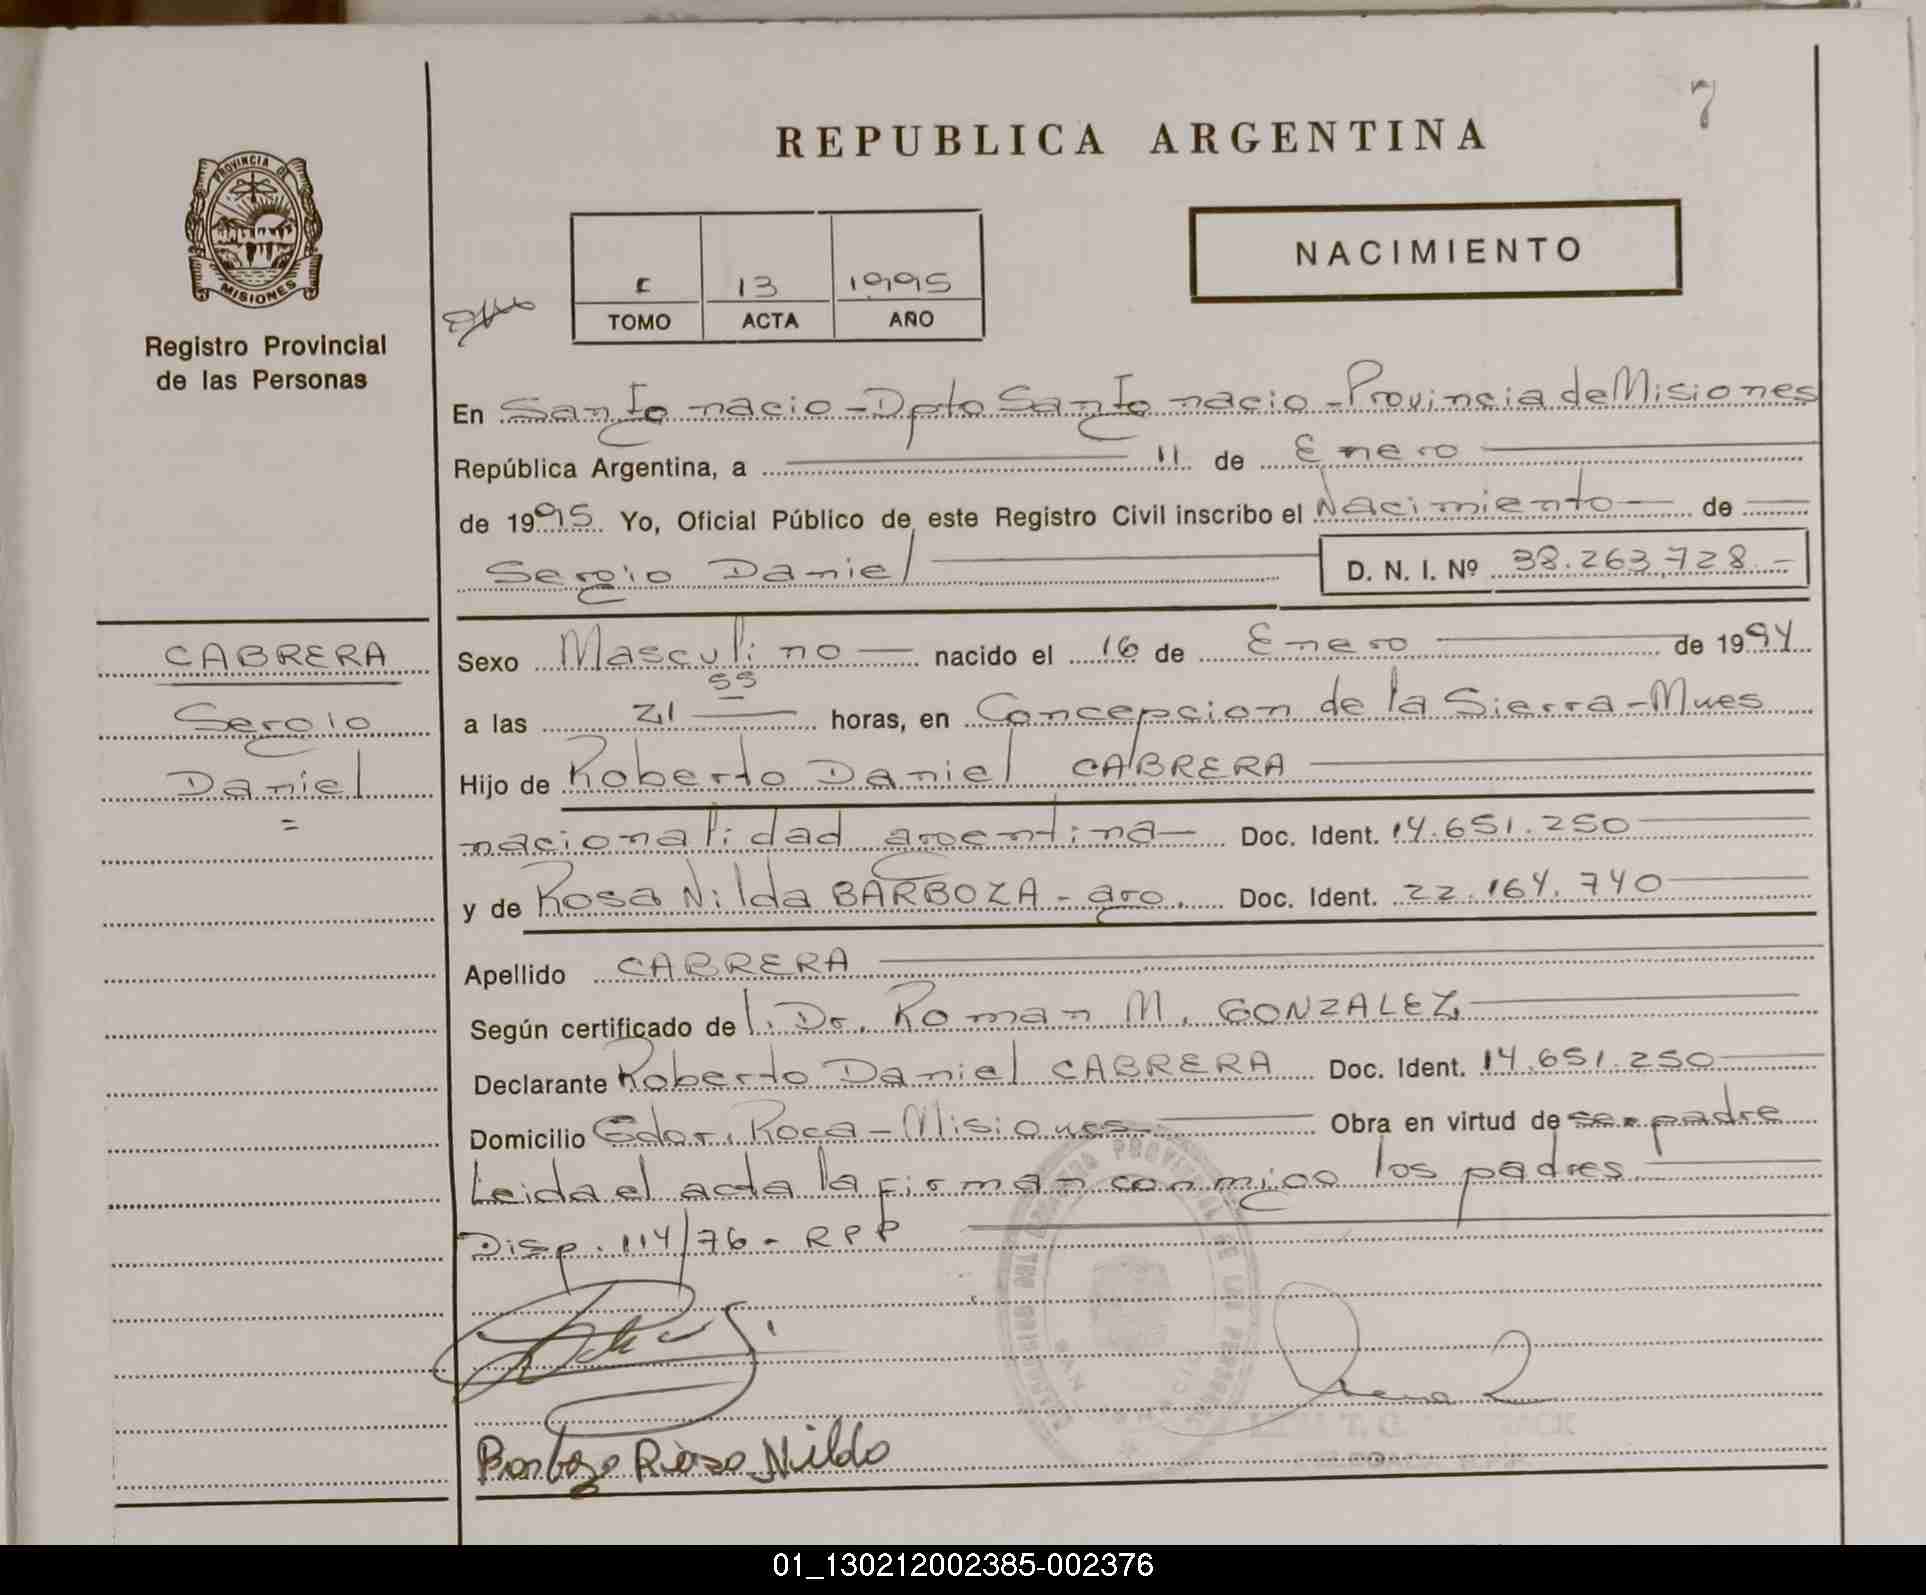 7
REPUBLICA ARGENTINA
PROVINCIA DE
MISIONES
Registro Provincial
de las Personas
NACIMIENTO
13 1995
TOMO ACTA AÑO
En San Ignacio - Dpto San Ignacio - Provincia de Misiones
República Argentina, a 11 de Enero
de 1995 Yo, Oficial Público de este Registro Civil inscribo el Nacimiento de
Sergio Daniel D. N. I. Nº 38.263.728.-
CABRERA
Sergio
Daniel
=
Sexo Masculino nacido el 16 de Enero de 1994
55
a las 21 horas, en Concepcion de la Sierra - Mnes
Hijo de Roberto Daniel CABRERA
nacionalidad argentina Doc. Ident. 14.651.250
y de Rosa Nilda BARBOZA - arg. Doc. Ident. 22.164.740
Apellido CABRERA
Según certificado de l. Dr. Roman M. GONZALEZ
Declarante Roberto Daniel CABRERA Doc. Ident. 14.651.250
Domicilio Gdor. Roca - Misiones Obra en virtud de ser padre
Leida el acta la firman conmigo los padres
Disp. 114/76 - RPP
Nilda
01_130212002385-002376